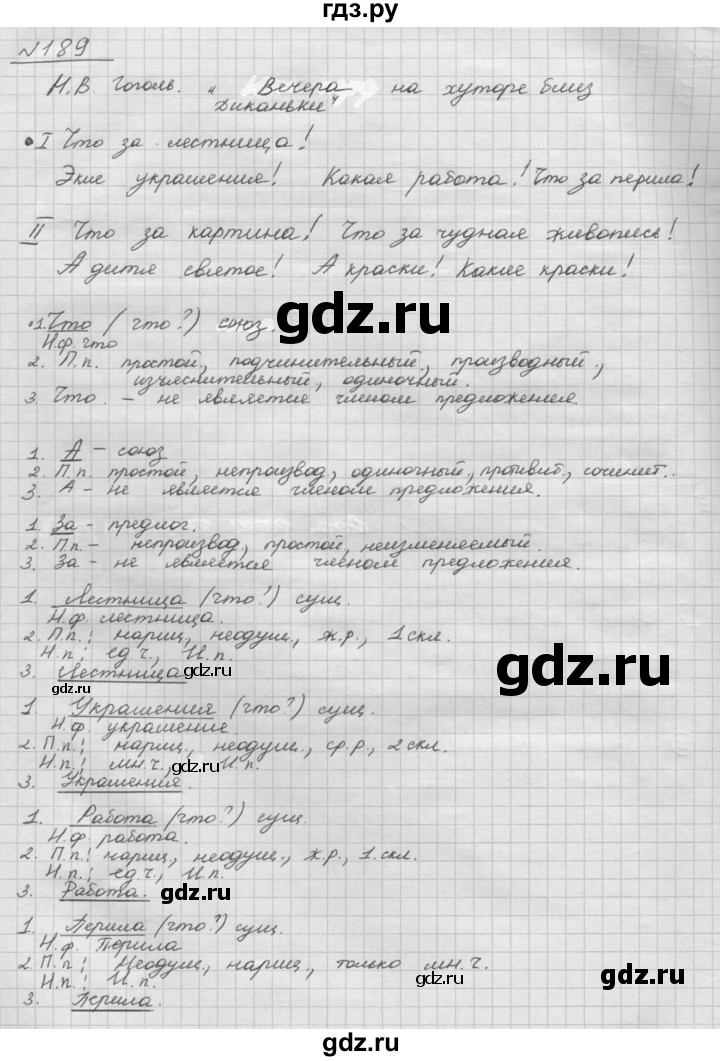 гдз.ру
№189
Н.В. Гоголь. "Вечера на хуторе близ
Диканьки"
• I Что за лестница!
Экие украшения! Какая работа! Что за перила!
II Что за картина! Что за чудная живопись!
А дитя святое! А краски! Какие краски!
• 1. Что (что?) союз.
Н.ф. что
gdz.ru
2. П.п. простой, подчинительный, производный,
изъяснительный, одиночный.
3. Что. – не является членом предложения.
1. А – союз
2. П.п. простой, непроизвод, одиночный, противит, сочинит.
3. А – не является членом предложения.
1. За – предлог.
2. Пп – непроизвод, простой, неизменяемый.
3. За – не является членом предложения.
1. Лестница (что?) сущ.
Н.ф. лестница.
2. П.п.: нариц, неодуш., ж.р., 1 скл.
Н.п: ед.ч., И.п.
3. Лестница
gdz.ru
gdz.ru
1. Украшения (что?) сущ.
Н.ф. украшение.
2. П.п.: нариц., неодуш., ср.р., 2 скл.
Н.п.: мн.ч., И.п.
gdz.ru
3. Украшения.
1. Работа (что?) сущ.
Н.ф. работа.
2. П.п.: нариц, неодуш., ж.р., 1. скл.
Н.п.: ед.ч., И.п.
3. Работа. gdz.ru
1. Перила (что?) сущ.
Н.ф. Перила
2. П.п: Неодуш., нариц., только мн.ч.
Н.п: И.п.
gdz.ru
3. Перила.
gdz.ru
gdz.ru